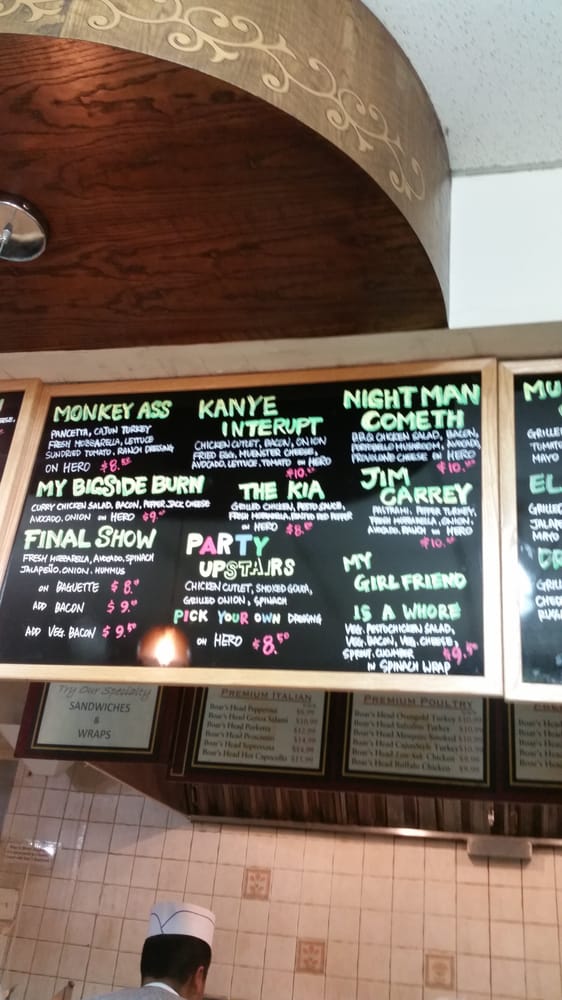 MONKEY ASS
PANCETTA, CAJUN TURKEY
FRESH MOZZARELLA, LETTUCE
SUNDRIED TOMATO, RANCH DRESSING
ON HERO $8.50
KANYE
INTERUPT
CHICKEN CUTLET, BACON, ONION
FRIED EGG, MUENSTER CHEESE,
AVOCADO, LETTUCE, TOMATO ON HERO
$10.
NIGHTMAN
COMETH
B.B.Q CHICKEN SALAD, BACON,
PORTOBELLO MUSHROOM, AVOCADO,
PROVOLONE CHEESE ON HERO
$10.
MY BIGSIDE BURN
CURRY CHICKEN SALAD, BACON, PEPPER JACK CHEESE
AVOCADO, ONION ON HERO $9.
THE KIA
GRILLED CHICKEN, PESTO SAUCE,
FRESH MOZZARELLA, ROASTED RED PEPPER
ON HERO $8.
JIM
CARREY
PASTRAMI, PEPPER TURKEY,
FRESH MOZZARELLA, ONION,
AVOCADO, RANCH ON HERO
$10.
FINAL SHOW
FRESH MOZZARELLA, AVOCADO, SPINACH
JALAPEÑO, ONION, HUMMUS
ON BAGUETTE $8.
ADD BACON $9.
ADD VEG. BACON $9.50
PARTY
UPSTAIRS
CHICKEN CUTLET, SMOKED GOUDA,
GRILLED ONION, SPINACH
PICK YOUR OWN DRESSING
ON HERO $8.50
MY
GIRLFRIEND
IS A WHORE
VEG. PESTO CHICKEN SALAD,
VEG. BACON, VEG. CHEESE,
SPROUT, CUCUMBER $9.50
IN SPINACH WRAP
MU
GRILLE
TOMATO
MAYO
EL
GRILLE
JALAP
MAYO
Try Our Specialty
SANDWICHES
&
WRAPS
PREMIUM ITALIAN
Boar's Head Pepperoni
Boar's Head Genoa Salami
Boar's Head Porketta
Boar's Head Prosciutto
Boar's Head Sopressata
Boar's Head Hot Capocollo
PREMIUM POULTRY
Boar's Head Ovengold Turkey
Boar's Head Salsalito Turkey
Boar's Head Mesquite
Boar's Head Cajun Style Turkey
Boar's Head
Boar's Head Buffalo Chicken